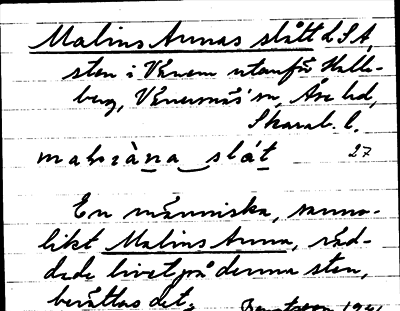 Malins Annas slått L S A,
sten i Vänern utanför Halle-
berg, Vänersnäs sn, Åse hd,
Skarab. l.
27
En människa, sanno-
likt Malins Anna, räd-
dade livet på denna sten,
berättas det.